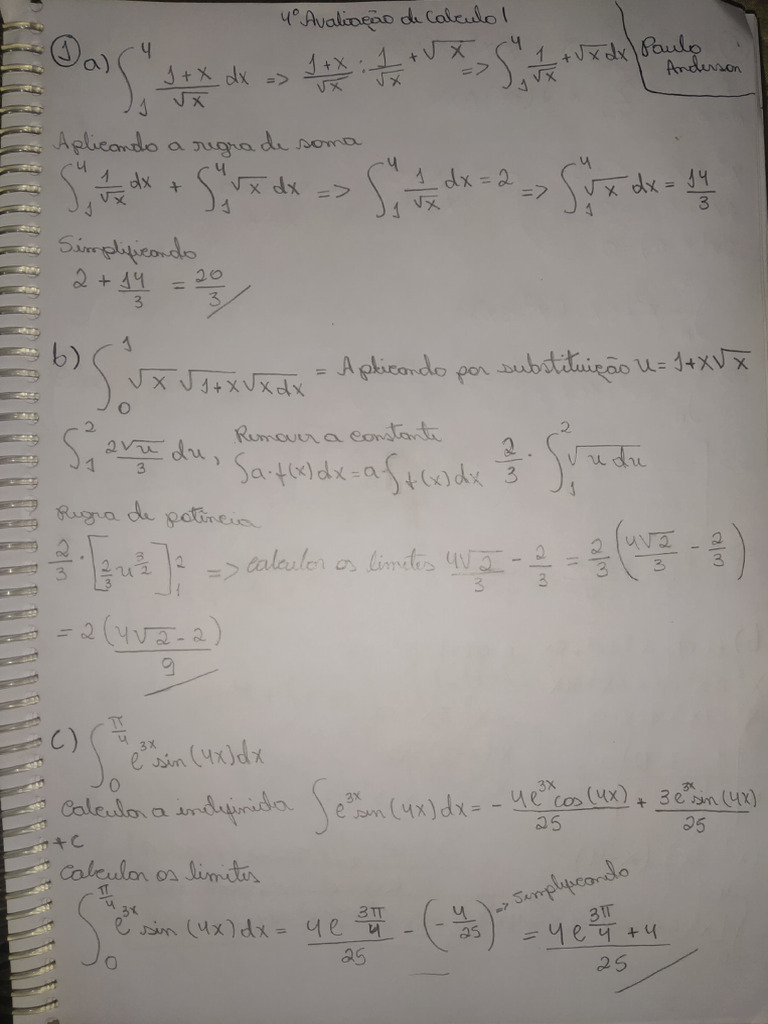 4º Avaliação de Calculo 1
Paulo Anderson
① a) ∫₁⁴ (1+x)/√x dx => (1+x)/√x : 1/√x + √x => ∫₁⁴ 1/√x + √x dx
Aplicando a regra de soma
∫₁⁴ 1/√x dx + ∫₁⁴ √x dx => ∫₁⁴ 1/√x dx = 2 => ∫₁⁴ √x dx = 14/3
Simplificando
2 + 14/3 = 20/3
b) ∫₀¹ √x √(1+x√x dx) = Aplicando por substituição u = 1+x√x
∫₁² 2√u/3 du, Remover a constante
∫a·f(x)dx = a∫f(x)dx 2/3 · ∫₁² √u du
Regra de potência
2/3 · [2/3 u^(3/2)]₁² => calcular os limites 4√2/3 - 2/3 = 2/3 (4√2/3 - 2/3)
= 2(4√2-2)/9
c) ∫₀^(π/4) e^(3x) sin(4x)dx
Calcular a indefinida ∫ e^(3x) sin(4x)dx = - 4e^(3x) cos(4x)/25 + 3e^(3x) sin(4x)/25
+c
Calcular os limites
∫₀^(π/4) e^(3x) sin(4x)dx = 4e^(3π/4)/25 - (-4/25) => Simplificando = (4e^(3π/4) + 4)/25